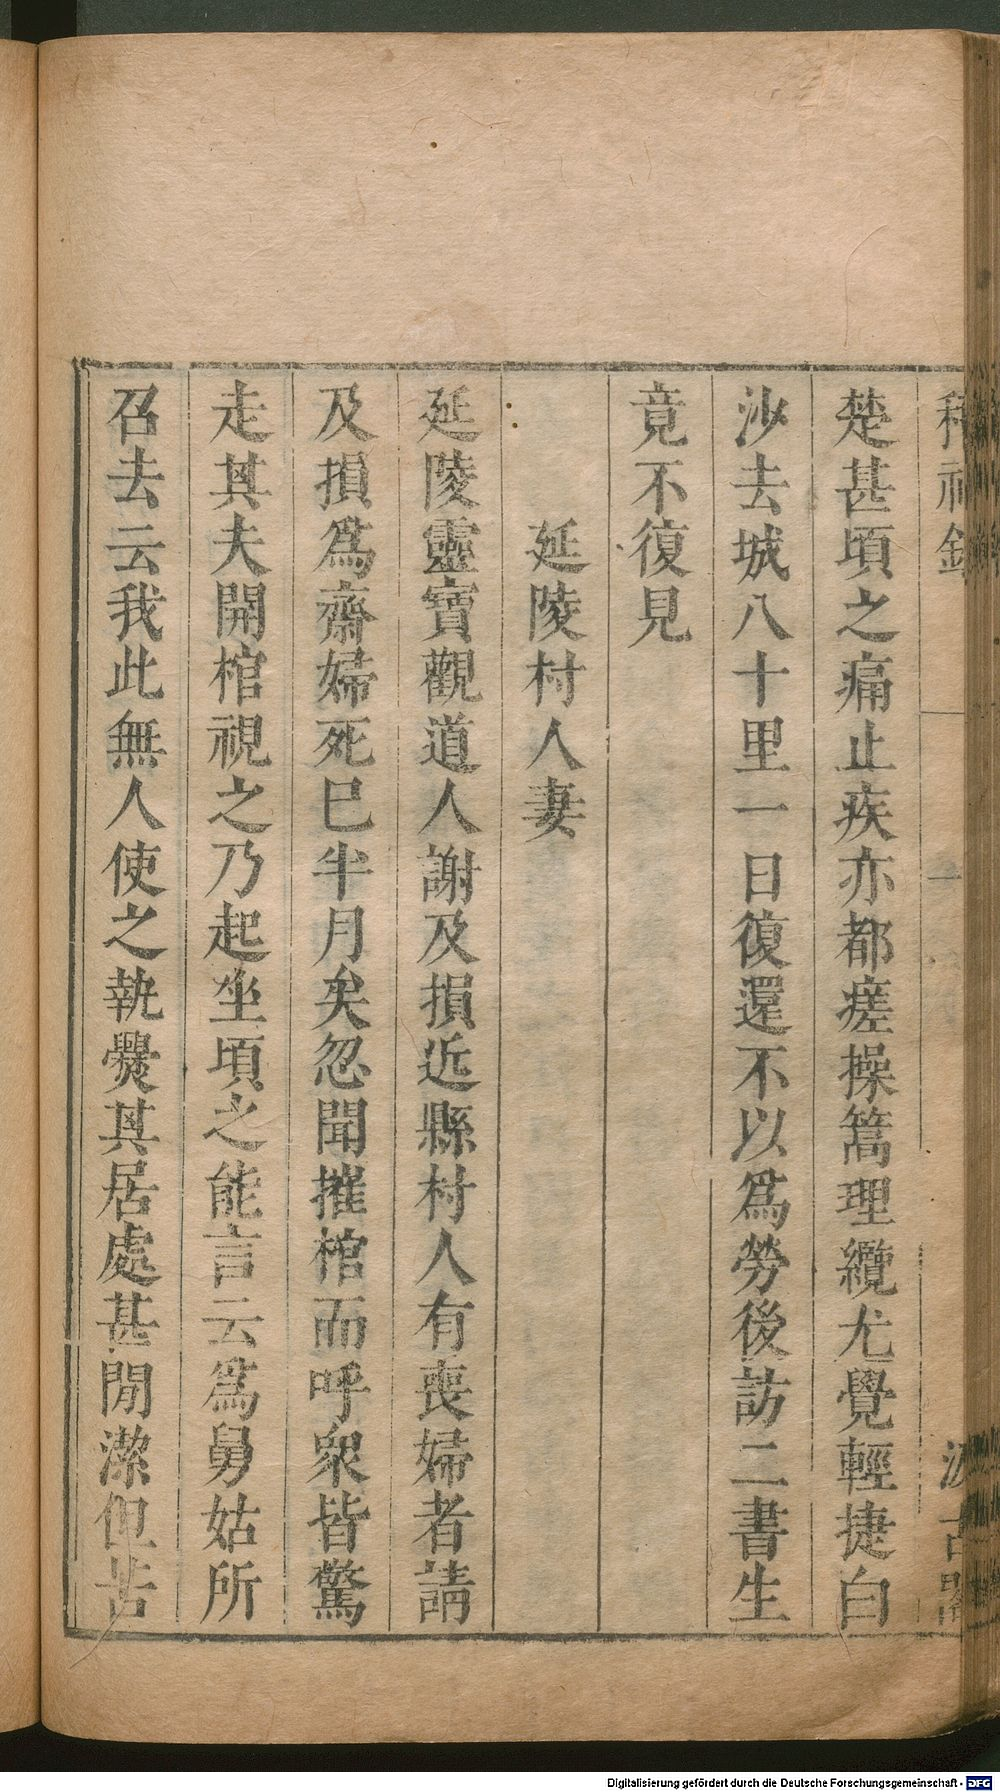 楚甚頃之痛止疾亦都瘥操篙理纜尤覺輕捷白
沙去城八十里一日復還不以爲勞後訪二書生
竟不復見
延陵村人妻
延陵靈寶觀道人謝及損近縣村人有喪婦者請
及損爲齋婦死已半月矣忽聞摧棺而呼衆皆驚
走其夫開棺視之乃起坐頃之能言云爲舅姑所
召去云我此無人使之執爨其居處甚閒潔但苦
Digitalisierung gefördert durch die Deutsche Forschungsgemeinschaft - DFG